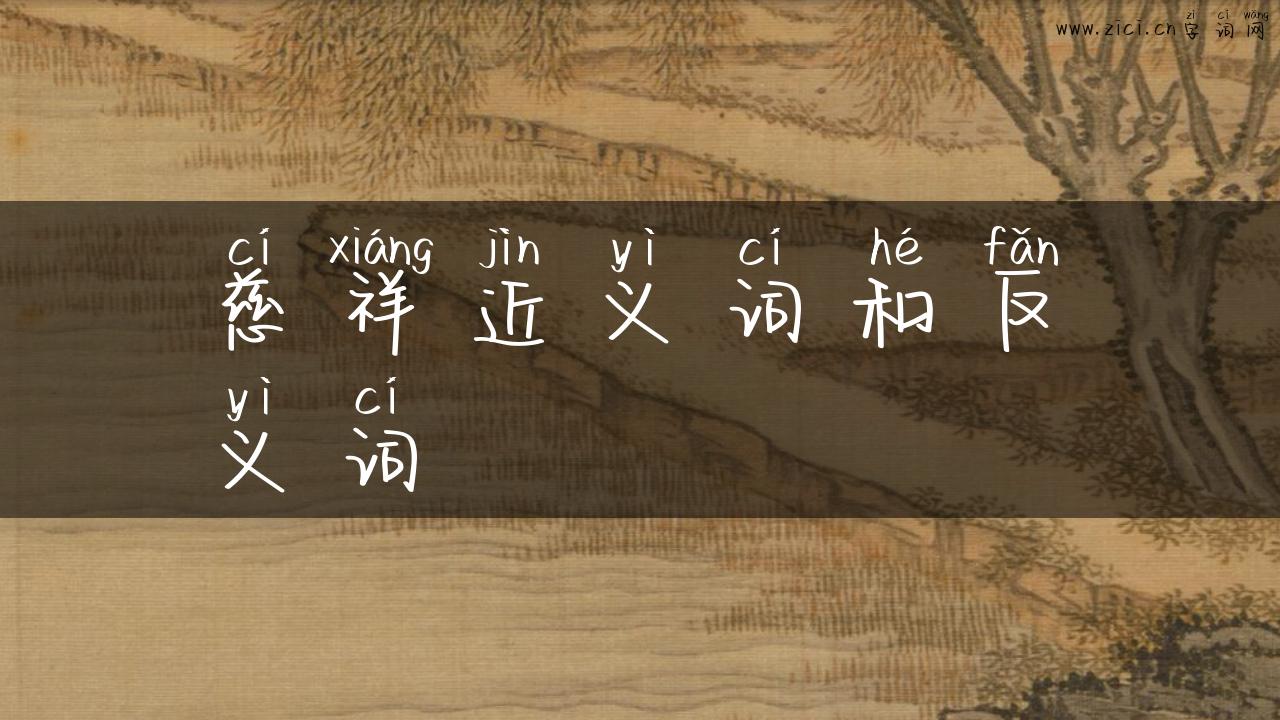 zì cí wǎng
www.zici.cn字词网
cí xiáng jìn yì cí hé fǎn
慈祥近义词和反
yì cí
义词